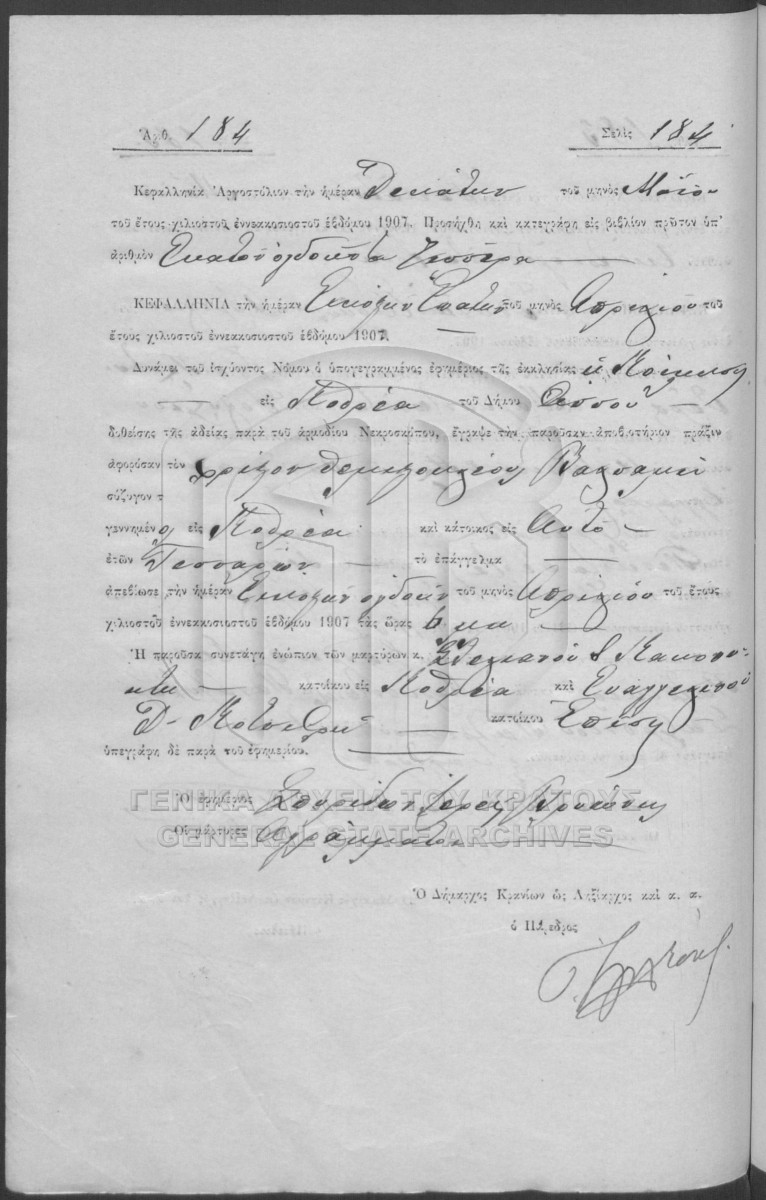 Ἀριθ. 184 Σελὶς 184
Κεφαλληνία Ἀργοστόλιον τὴν ἡμέραν Δεκάτην τοῦ μηνὸς Μαΐου
τοῦ ἔτους χιλιοστοῦ ἐννεακοσιοστοῦ ἑβδόμου 1907. Προσήχθη καὶ κατεγράφη εἰς βιβλίον πρῶτον ὑπ'
ἀριθμὸν Εκατὸν ὀγδοῆντα τέσσερα
ΚΕΦΑΛΛΗΝΙΑ τὴν ἡμέραν Εικοστὴν Ενάτην τοῦ μηνὸς Απριλίου τοῦ
ἔτους χιλιοστοῦ ἐννεακοσιοστοῦ ἑβδόμου 1907.
Δυνάμει τοῦ ἰσχύοντος Νόμου ὁ ὑπογεγραμμένος ἐφημέριος τῆς ἐκκλησίας ἡ Κοίμησις
εἰς Κοθρέα τοῦ Δήμου
δοθείσης τῆς ἀδείας παρὰ τοῦ ἁρμοδίου Νεκροσκόπου, ἔγραψε τὴν παροῦσαν ἀποβιωτήριον πρᾶξιν
ἀφορῶσαν τὸν Χρίστον Θεμιστοκλέους Βαλσαμῆ
σύζυγον τ
γεννημένο εἰς Κοθρέα καὶ κάτοικος εἰς Αυτό
ἐτῶν Τεσσάρων τὸ ἐπάγγελμα
ἀπεβίωσε τὴν ἡμέραν Εικοστὴν ὀγδοὴν τοῦ μηνὸς Απριλίου τοῦ ἔτους
χιλιοστοῦ ἐννεακοσιοστοῦ ἑβδόμου 1907 τὰς ὥρας 6 μμ
Ἡ παροῦσα συνετάγη ἐνώπιον τῶν μαρτύρων κ.
κατοίκου εἰς Κοθρέα καὶ Ευαγγελινοῦ
Δ. κατοίκου Επίσης
ὑπεγράφη δὲ παρὰ τοῦ ἐφημερίου.
Ὁ ἐφημέριος Σπυρίδων Ιερεὺς
Οἱ μάρτυρες Αγράμματοι
ΓΕΝΙΚΑ ΑΡΧΕΙΑ ΤΟΥ ΚΡΑΤΟΥΣ
GENERAL STATE ARCHIVES
Ὁ Δήμαρχος Κρανίων ὡς Ληξίαρχος καὶ κ. κ.
ὁ Πάρεδρος